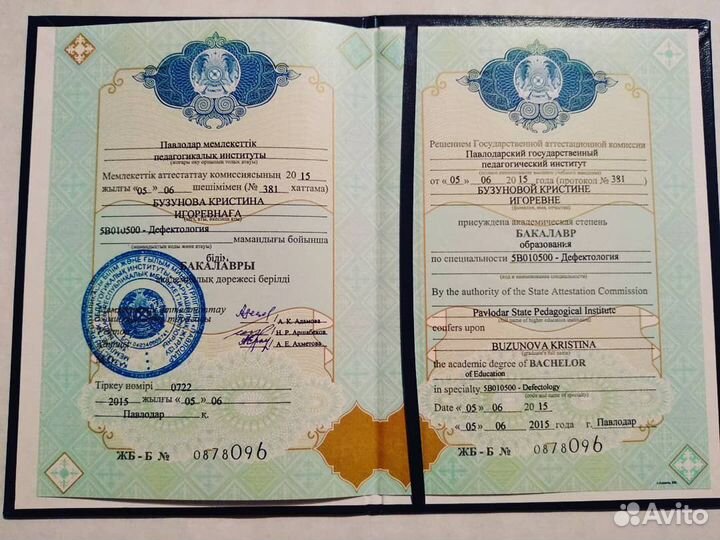 Павлодар мемлекеттік
педагогикалық институты
(жоғары оқу орнының толық атауы)
Мемлекеттік аттестаттау комиссиясының 20 15
жылғы «05» 06 шешімімен (№ 381 хаттама)
БУЗУНОВА КРИСТИНА
ИГОРЕВНАҒА
5В010500 - Дефектология
мамандығы бойынша
(мамандықтың коды және атауы)
білім
БАКАЛАВРЫ
дәрежесі берілді
А. К. Адамова
Н. Р. Аршабеков
А. Е. Ахметова
Тіркеу нөмірі 0722
2015 жылғы «05» 06
Павлодар қ.
ЖБ - Б № 0878096
Решением Государственной аттестационной комиссии
Павлодарский государственный
педагогический институт
(полное наименование высшего учебного заведения)
от «05» 06 20 15 года (протокол № 381 )
БУЗУНОВОЙ КРИСТИНЕ
ИГОРЕВНЕ
(фамилия, имя, отчество)
присуждена академическая степень
БАКАЛАВР
образования
по специальности 5В010500 - Дефектология
(код и наименование специальности)
By the authority of the State Attestation Commission
Pavlodar State Pedagogical Institute
(full name of higher education institution)
confers upon
BUZUNOVA KRISTINA
(graduate's full name)
the academic degree of BACHELOR
of Education
in specialty 5B010500 - Defectology
(code and name of specialty)
Date «05» 06 20 15
«05» 06 2015 года г. Павлодар
ЖБ - Б № 0878096
Avito